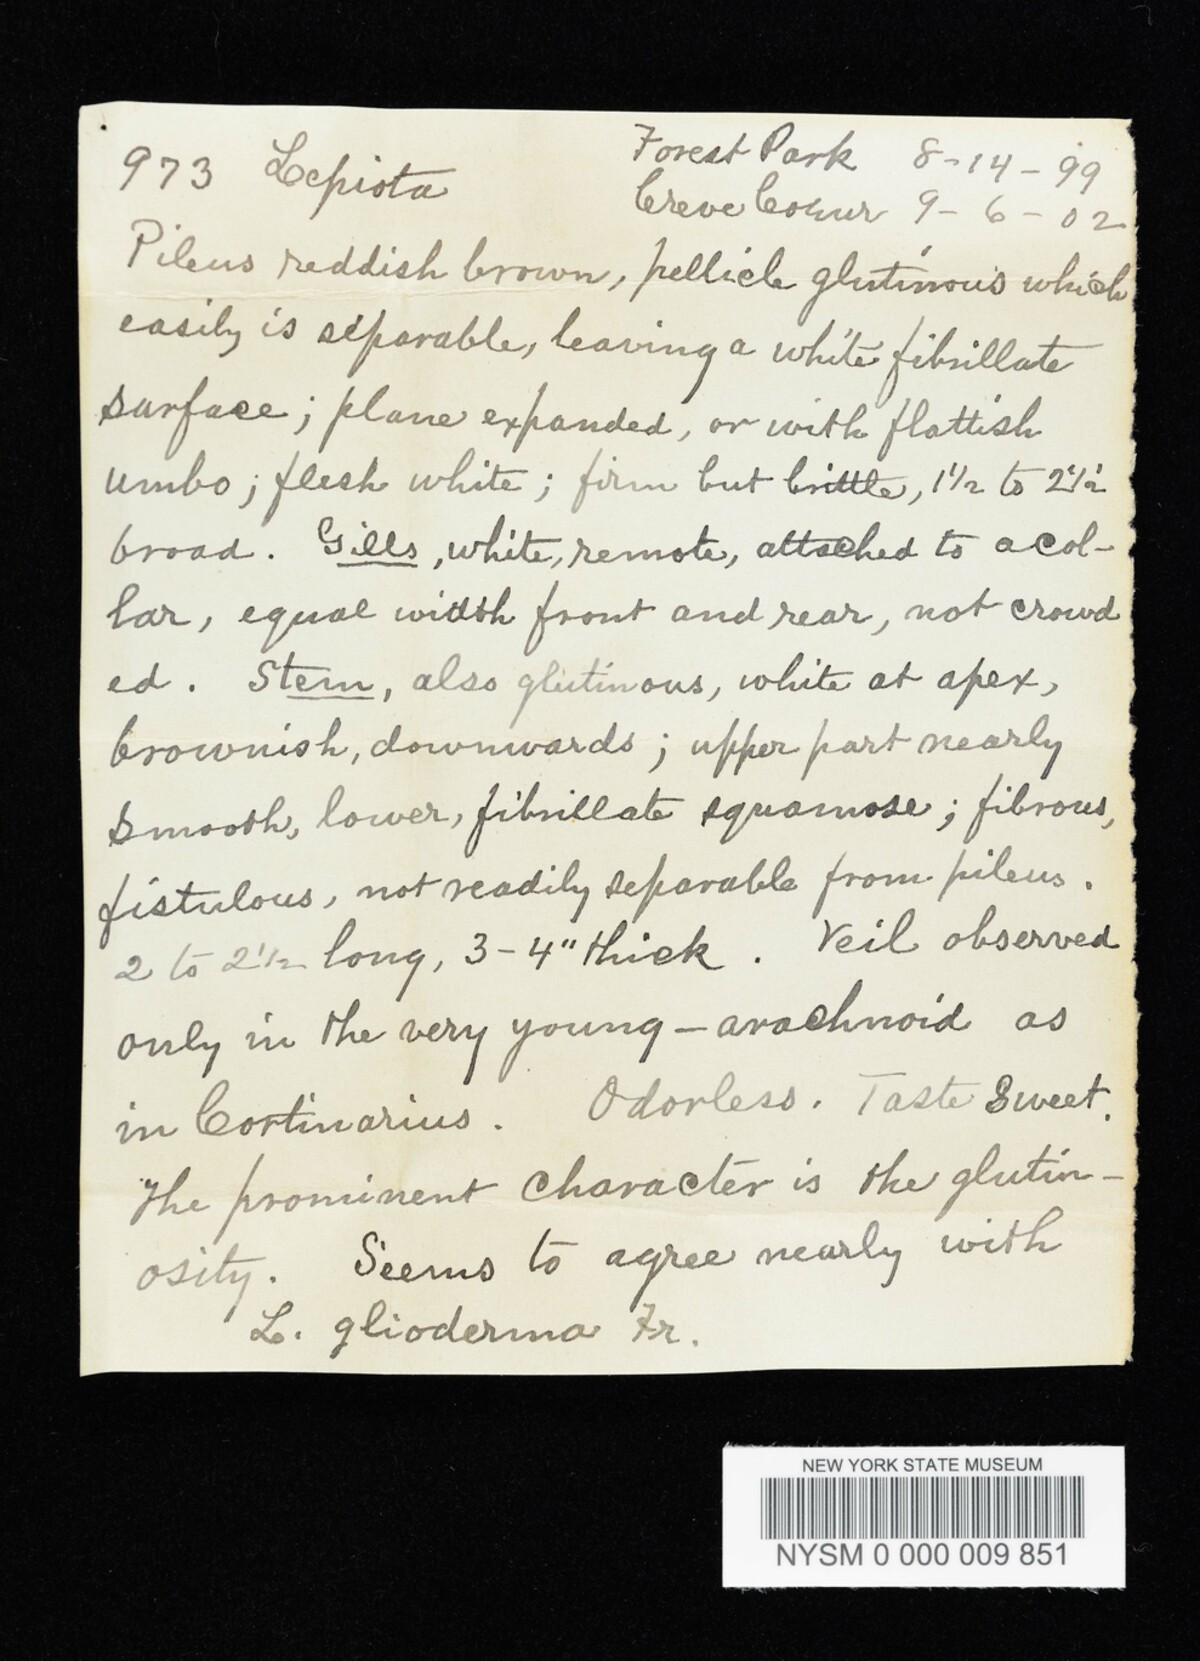 973 Lepiota Forest Park 8-14-99
Creve Coeur 9-6-02
Pileus reddish brown, pellicle glutinous which
easily is separable, leaving a white fibrillate
surface; plane expanded, or with flattish
umbo; flesh white; firm but brittle, 1 1/2 to 2 1/2
broad. Gills, white, remote, attached to a col-
lar, equal width front and rear, not crowd
ed. Stem, also glutinous, white at apex,
brownish, downwards; upper part nearly
smooth, lower, fibrillate squamose; fibrous,
fistulous, not readily separable from pileus.
2 to 2 1/2 long, 3-4" thick. Veil observed
only in the very young - arachnoid as
in Cortinarius. Odorless. Taste Sweet.
The prominent character is the glutin-
osity. Seems to agree nearly with
L. glioderma Fr.
NEW YORK STATE MUSEUM
NYSM 0 000 009 851